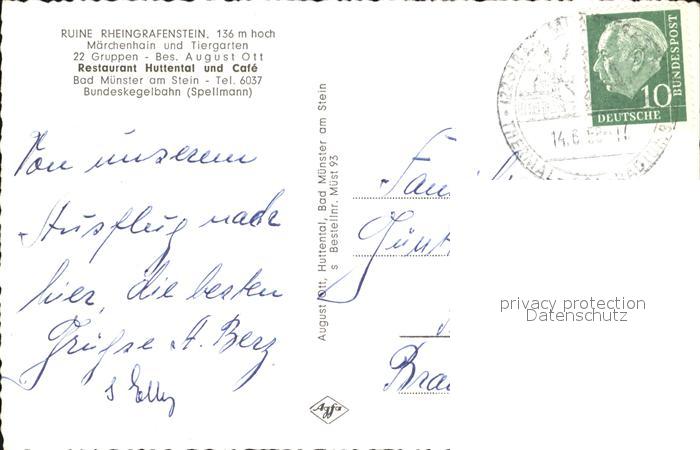 RUINE RHEINGRAFENSTEIN, 136 m hoch
Märchenhain und Tiergarten
22 Gruppen - Bes. August Ott
Restaurant Huttental und Café
Bad Münster am Stein - Tel. 6037
Bundeskegelbahn (Spellmann)
Von unserem
Ausflug nach
hier, die besten
Grüße A. Berz
August Ott, Huttental, Bad Münster am Stein
s Bestellnr. Müst 93
Agfa
10
BUNDESPOST
DEUTSCHE
14.6
Fam
Günt
Bra
privacy protection
Datenschutz